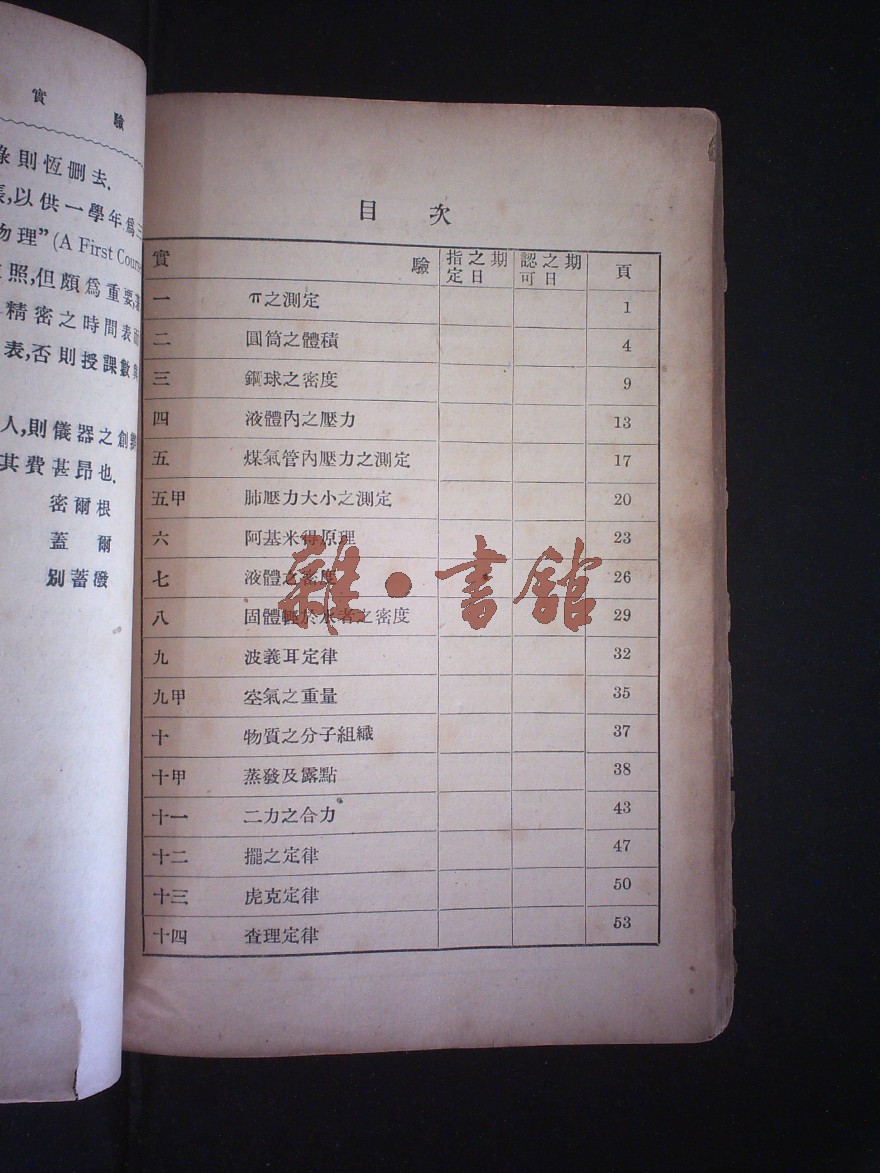 實驗
錄則恆刪去.
長,以供一學年爲三
物理”(A First Course
照,但頗爲重要,
精密之時間表而
表,否則授課數與
人,則儀器之創辦
其費甚昂也.
密爾根
蓋爾
別蓄潑
目次
實驗 指定之日期 認可之日期 頁
一 π之測定 1
二 圓筒之體積 4
三 鋼球之密度 9
四 液體內之壓力 13
五 煤氣管內壓力之測定 17
五甲 肺壓力大小之測定 20
六 阿基米得原理 23
七 液體之密度 26
八 固體輕於水者之密度 29
九 波義耳定律 32
九甲 空氣之重量 35
十 物質之分子組織 37
十甲 蒸發及露點 38
十一 二力之合力 43
十二 擺之定律 47
十三 虎克定律 50
十四 查理定律 53
雜·書館